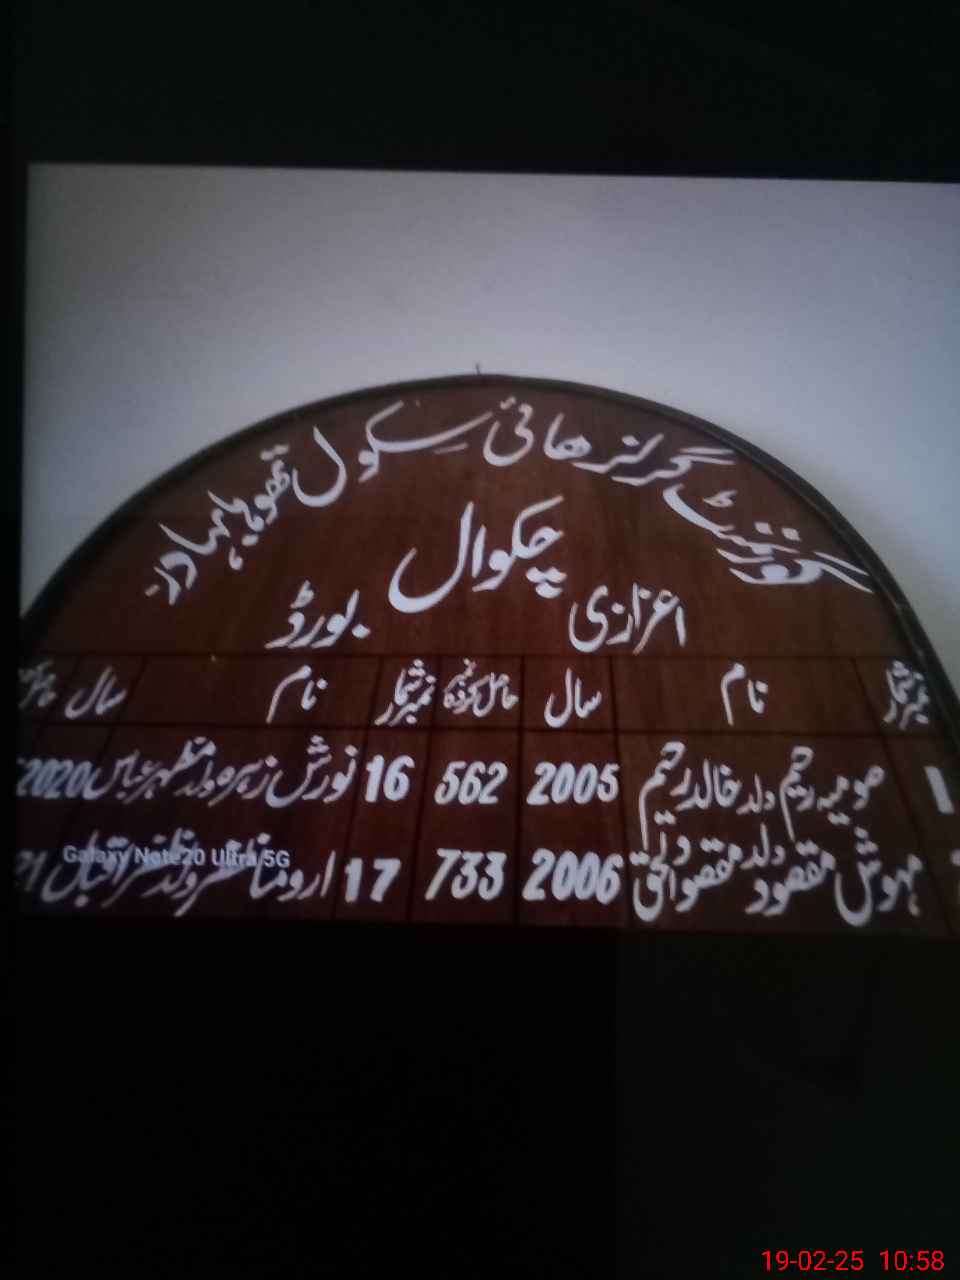 گورنمنٹ گرلز ھائی سکول تھوہا بہادر
چکوال
اعزازی بورڈ
نمبر شمار نام سال حاصل کردہ نمبر نمبر شمار نام سال
1 صومیہ رحیم ولد خالد رحیم 2005 562 16 نورش زہرہ ولد مظہر عباس 2020
مہوش مقصود ولد مقصود 2006 733 17 ولد ظفر اقبال
Galaxy Note20 Ultra 5G
19-02-25 10:58